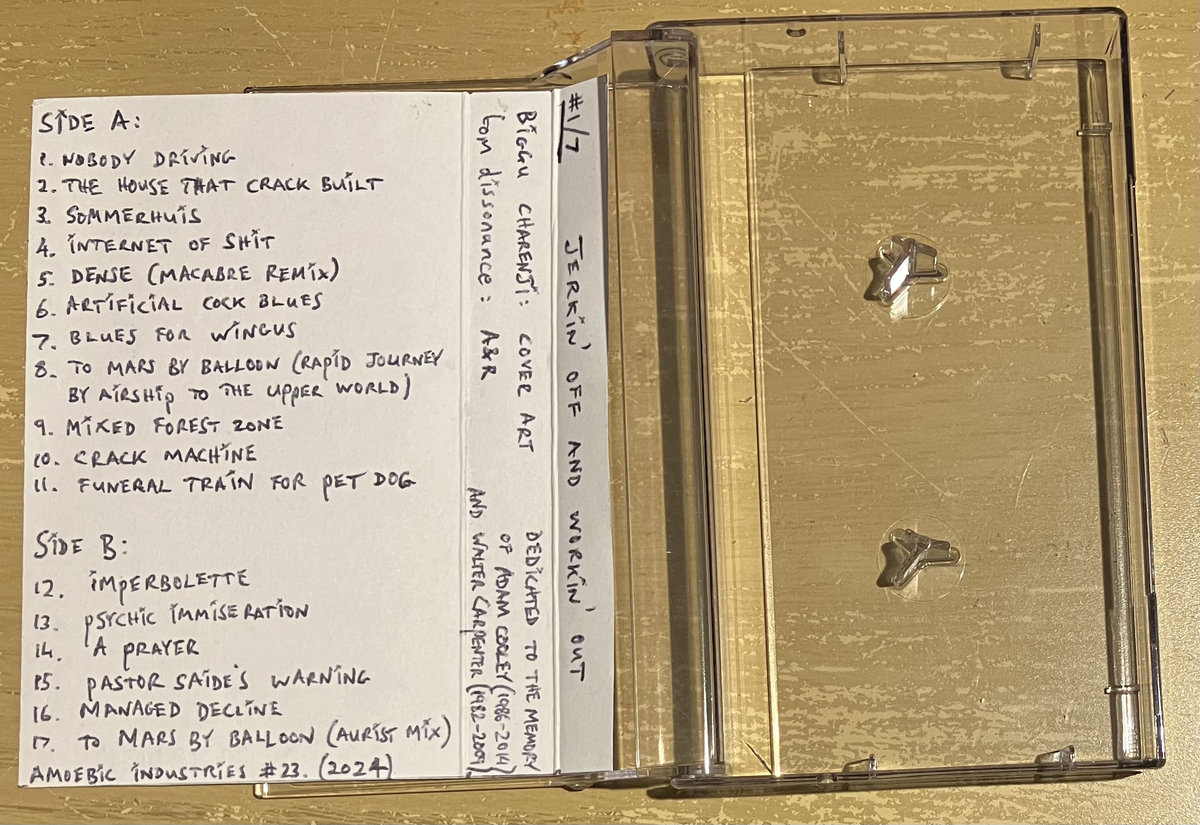 SIDE A:
1. NOBODY DRIVING
2. THE HOUSE THAT CRACK BUILT
3. SOMMERHUIS
4. INTERNET OF SHIT
5. DENSE (MACABRE REMIX)
6. ARTIFICIAL COCK BLUES
7. BLUES FOR WINGUS
8. TO MARS BY BALLOON (RAPID JOURNEY
BY AIRSHIP TO THE UPPER WORLD)
9. MIXED FOREST ZONE
10. CRACK MACHINE
11. FUNERAL TRAIN FOR PET DOG
SIDE B:
12. IMPERBOLETTE
13. PSYCHIC IMMISERATION
14. A PRAYER
15. PASTOR SAIDE'S WARNING
16. MANAGED DECLINE
17. TO MARS BY BALLOON (AURIST MIX)
AMOEBIC INDUSTRIES #23. (2024)
BIGGU CHARENJI: COVER ART
tom dissonance: A&R
DEDICATED TO THE MEMORY
OF ADAM COOLEY (1986-2014)
AND WALTER CARPENTER (1982-2009)
#1/7 JERKIN' OFF AND WORKIN' OUT